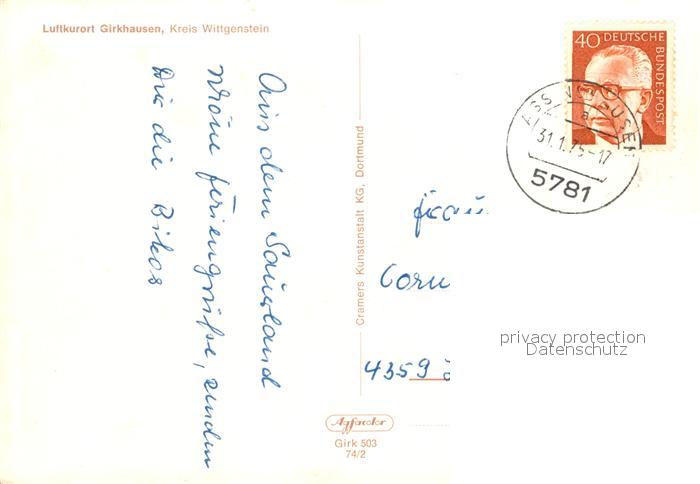 Luftkurort Girkhausen, Kreis Wittgenstein
Aus dem Sauerland
Feriengrüße, senden
Die
Cramers Kunstanstalt KG, Dortmund
40 DEUTSCHE BUNDESPOST
31.1.75-17
a
5781
Frau
Corn
4359
privacy protection
Datenschutz
Agfacolor
Girk 503
74/2